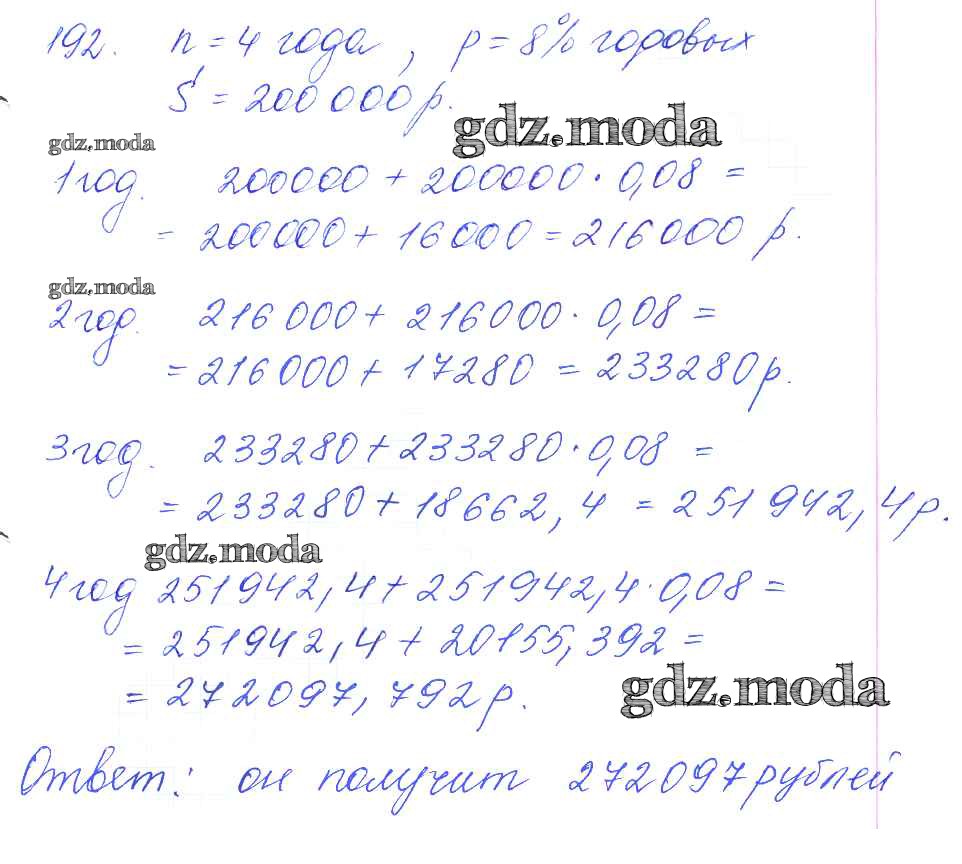 192. n = 4 года, p = 8% годовых
S = 200 000 р.
gdz.moda
gdz.moda
1 год. 200000 + 200000 · 0,08 =
= 200000 + 16000 = 216000 р.
gdz.moda
2 год. 216 000 + 216000 · 0,08 =
= 216 000 + 17280 = 233280 р.
3 год. 233280 + 233280 · 0,08 =
= 233280 + 18662,4 = 251 942,4 р.
gdz.moda
4 год 251942,4 + 251942,4 · 0,08 =
= 251942,4 + 20155,392 =
= 272097,792 р.
gdz.moda
Ответ: он получит 272097 рублей